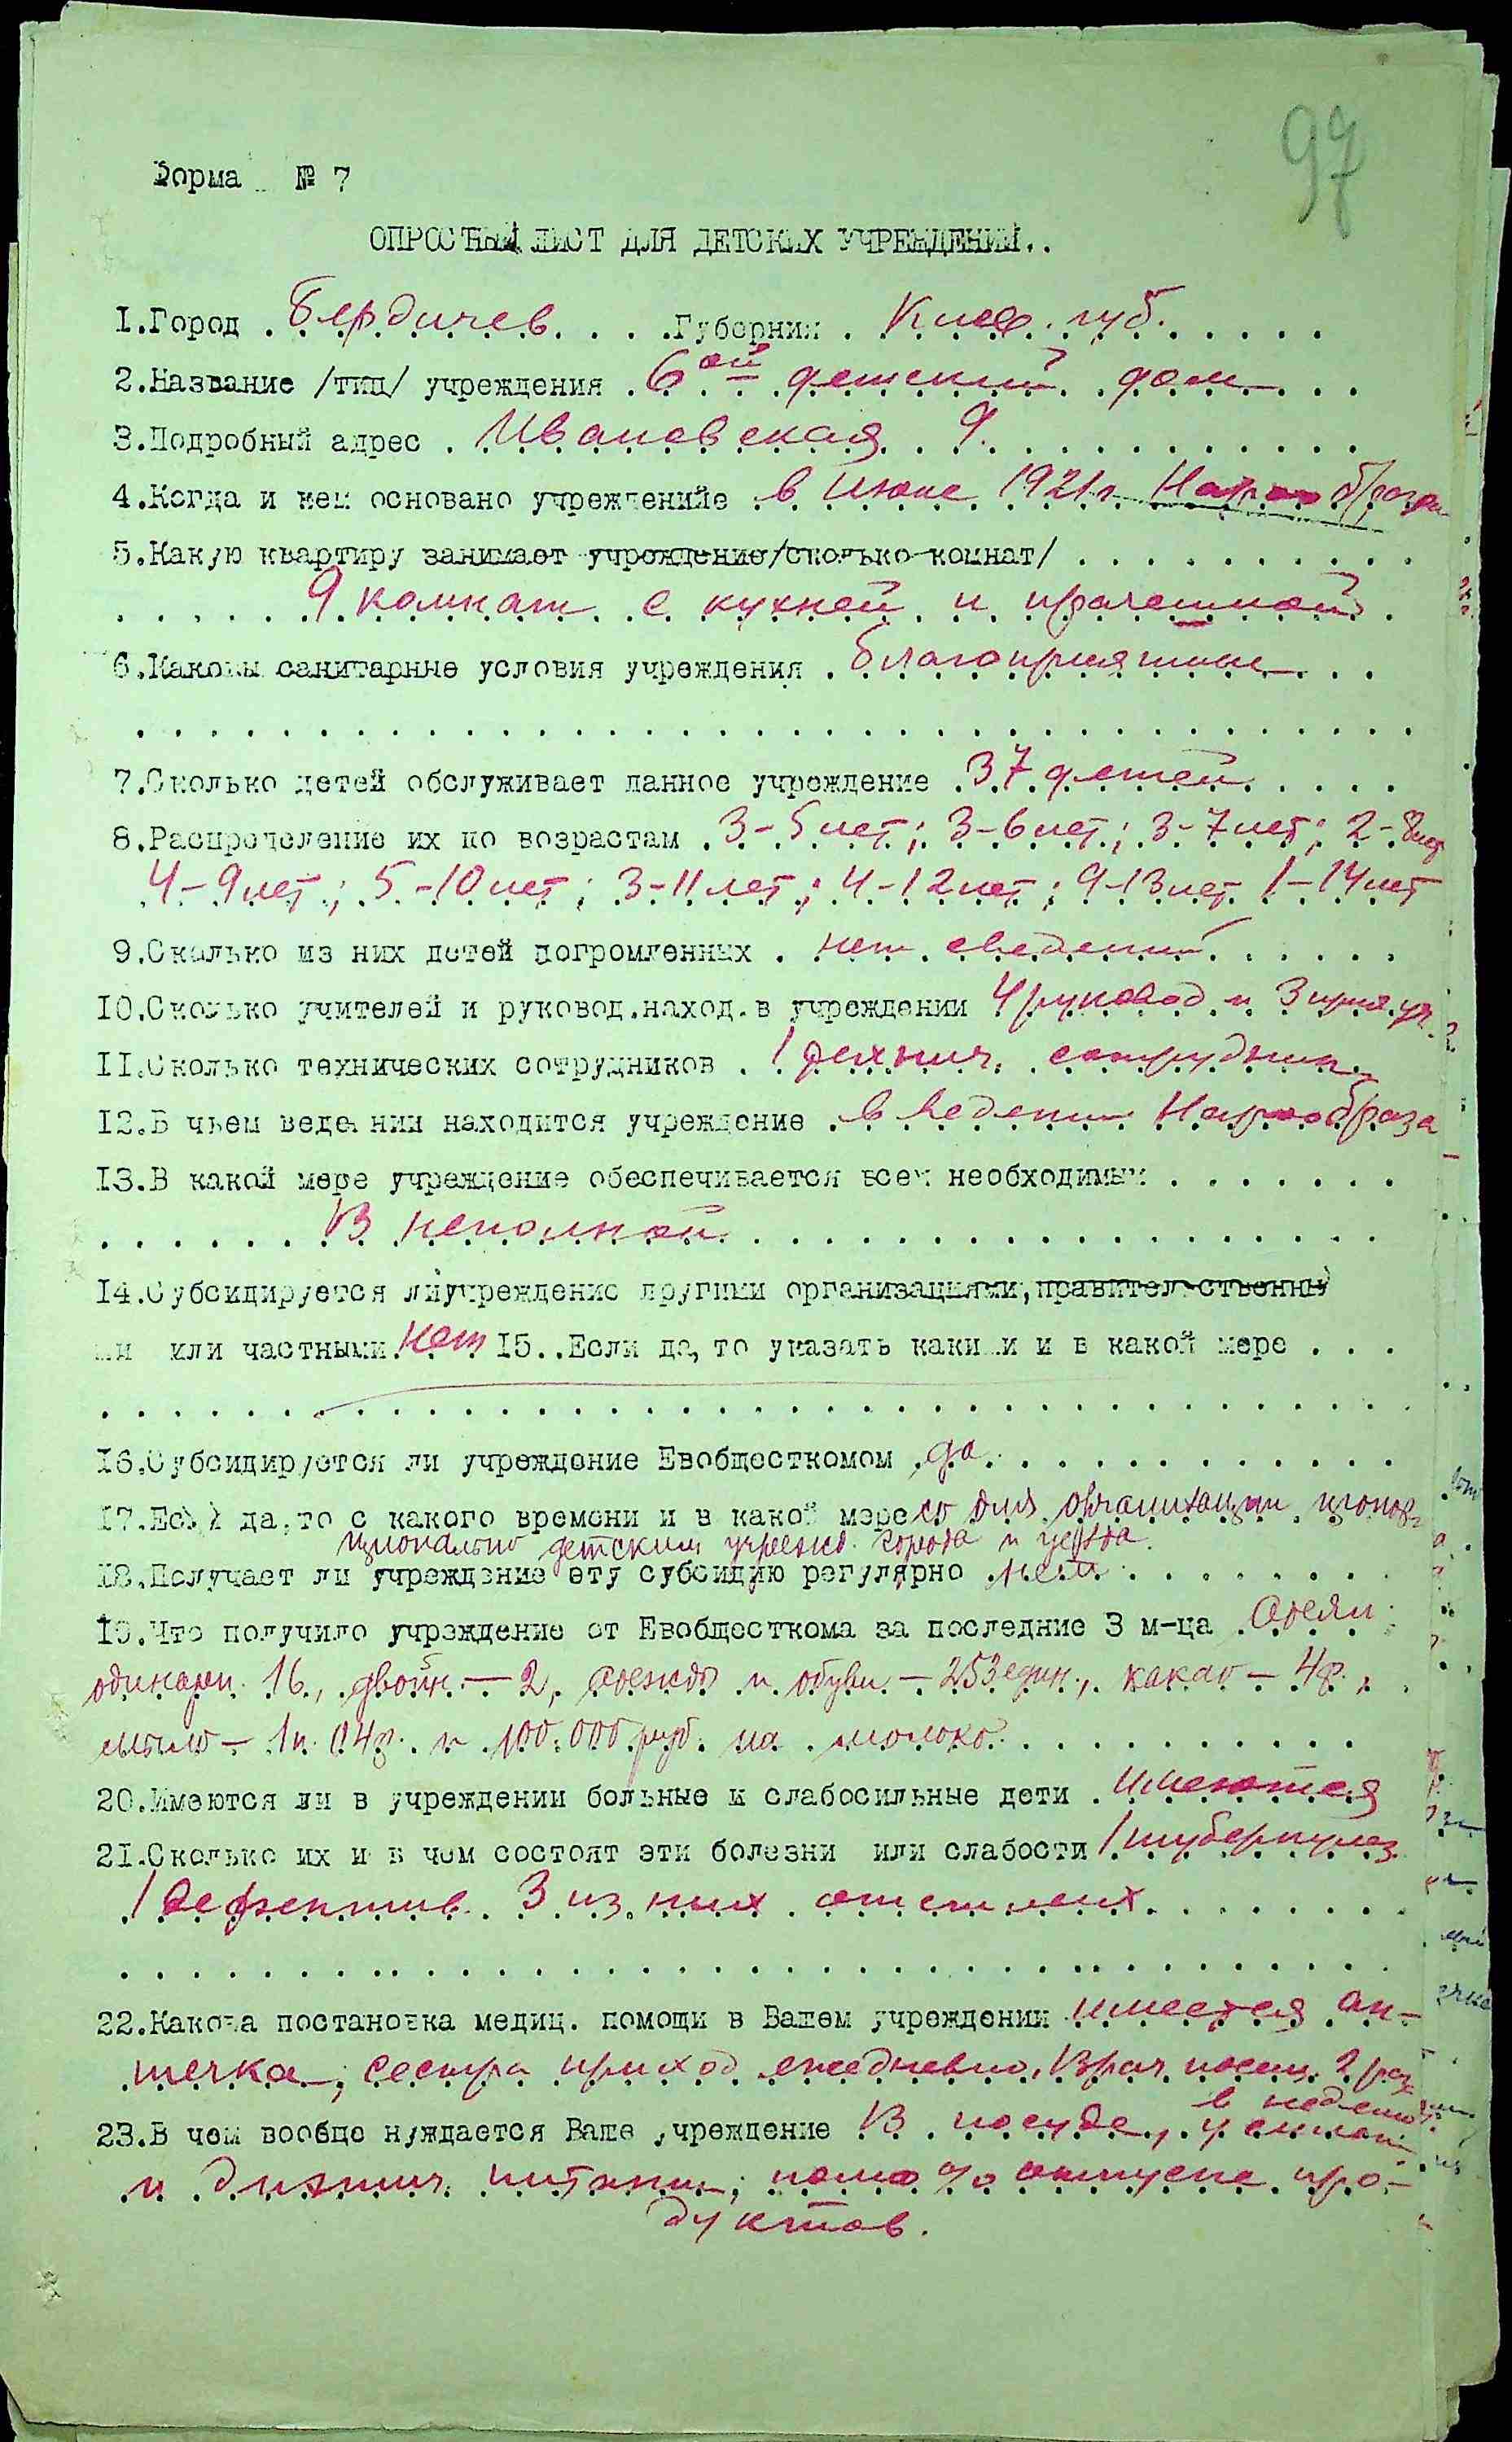 97
Форма № 7
ОПРОСНЫЙ ЛИСТ ДЛЯ ДЕТСКИХ УЧРЕЖДЕНИЙ..
1.Город . Бердичев. . . .Губерния . Киев. губ. . . . . .
2.Название /тип/ учреждения . 6ой детский дом . . .
3.Подробный адрес . Ивановская 9. . . . . . . . . . .
4.Когда и кем основано учреждениие . в Июне 1921 г. Наробразом
5.Какую квартиру занимает учреждение/сколько комнат/ . . . . . . . . . .
. . . . . 9 комнат с кухней и прачешной .
6.Каковы санитарные условия учреждения . благоприятные . . .
7.Сколько детей обслуживает данное учреждение . 37 детей. . . . .
8.Распределение их по возрастам . 3-5 лет; 3-6 лет; 3-7 лет; 2-8 лет
4-9 лет; 5-10 лет; 3-11 лет; 4-12 лет; 9-13 лет 1-14 лет
9.Сколько из них детей погромленных . нет сведений. . . . . .
10.Сколько учителей и руковод.наход.в учреждении 4 руковод и 3
11.Сколько технических сотрудников . 1 технич. сотрудник
12.В чьем ведении находится учреждение . в ведении Наробраза
13.В какой мере учреждение обеспечивается всем необходимым . . . . . . .
. . . . . . В неполной. . . . . . . . . . . . . . . . . . .
14.Субсидируется ли учреждение другими организациями, правительственны
ми или частными. Нет 15..Если да, то указать какими и в какой мере . . .
16.Субсидируется ли учреждение Евобщесткомом . да. . . . . . . . . . . .
17.Если да,то с какого времени и в какой мере со дня организации, пропор-
ционально детским учрежд. города и уезда.
18.Получает ли учреждение эту субсидию регулярно . нет . . . . . . . .
19.Что получило учреждение от Евобщесткома за последние 3 м-ца . Одеял
одинарн. 16, двойн. - 2, одежды и обуви - 253 един., какао - 4 ф.,
мыло - 1 п. 04 ф. и 100.000 руб. на молоко. . . . . . . . . . .
20.Имеются ли в учреждении больные и слабосильные дети . имеются
21.Сколько их и в чем состоят эти болезни или слабости 1 туберкулез
1 дефектив. 3 из них отсталых. . . . . . . .
22.Какова постановка медиц. помощи в Вашем учреждении имеется ап-
течка, сестра приход ежедневно, Врач посещ. 2 раз
в неделю
23.В чем вообще нуждается Ваше учреждение В посуде,
и питании; отпуске про-
дуктов.